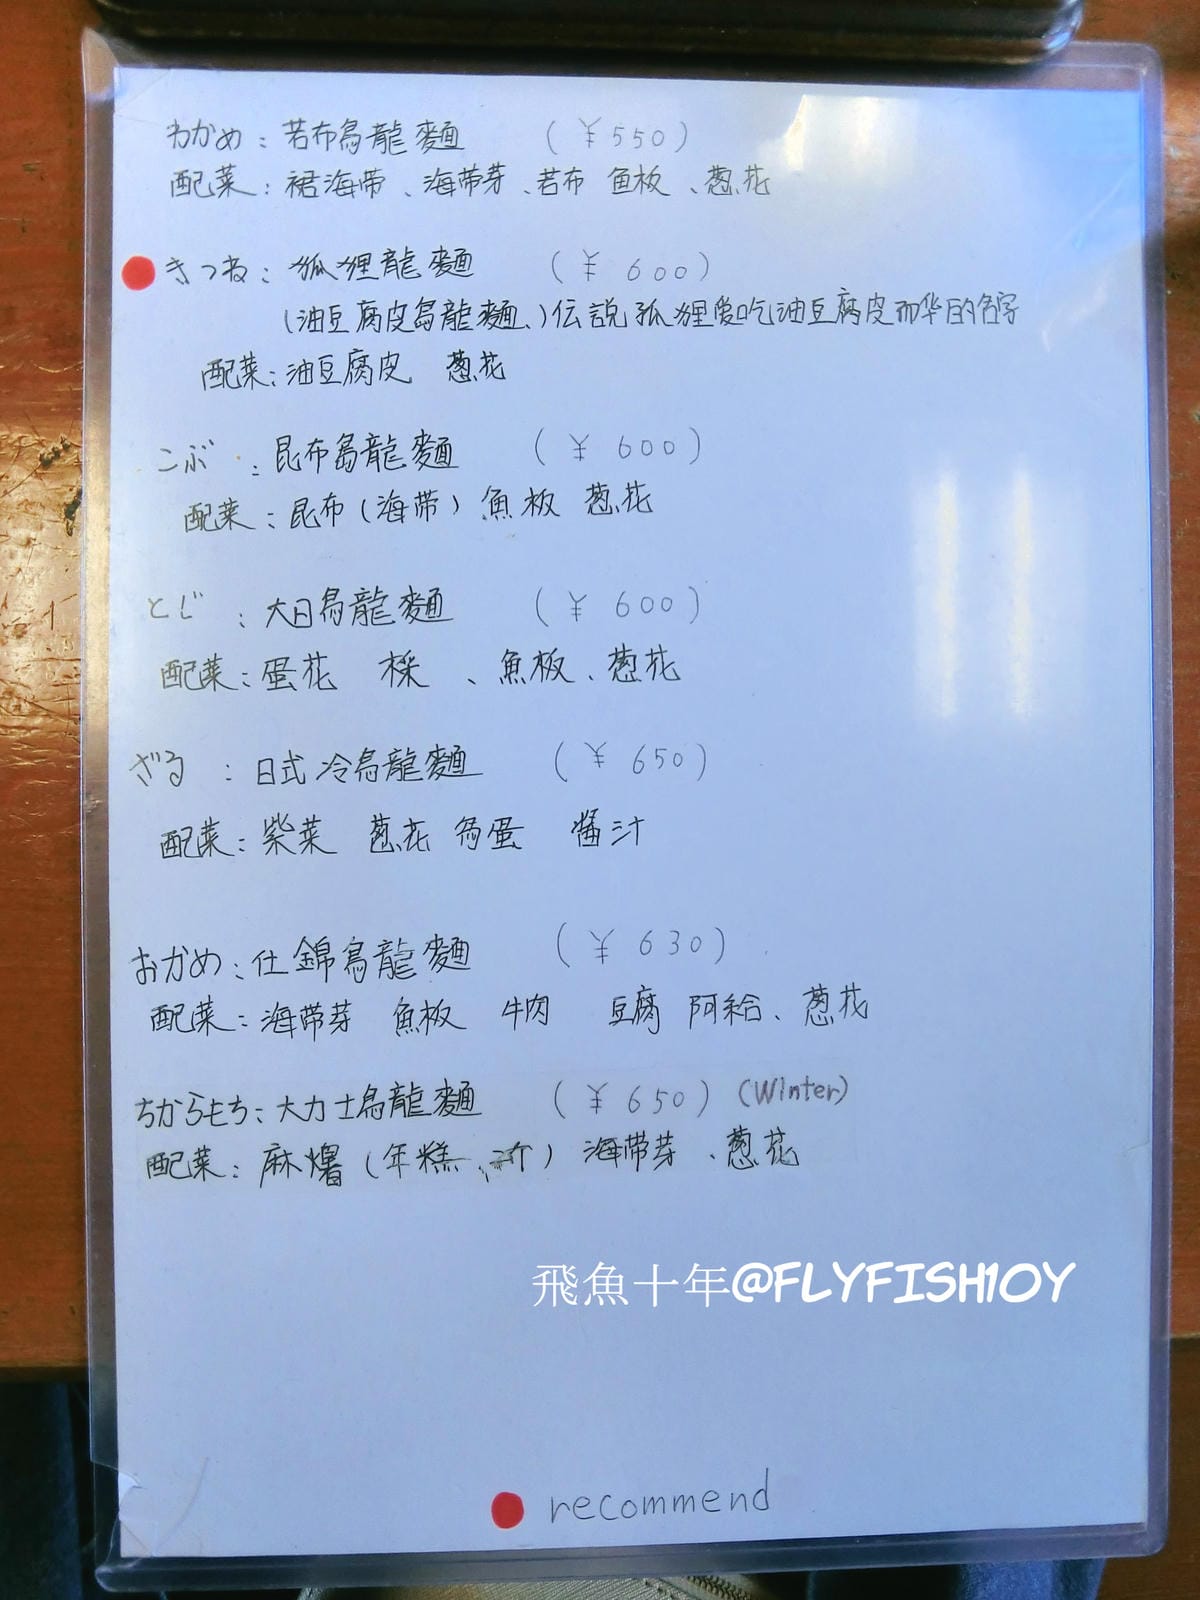 わかめ：若布烏龍麵 (¥550)
配菜：裙海带、海帯芽、若布 魚板、葱花
きつね：狐狸龍麵 (¥600)
(油豆腐皮烏龍麵、)伝説狐狸爱吃油豆腐皮而华的名字
配菜：油豆腐皮 葱花
こぶ：昆布烏龍麵 (¥600)
配菜：昆布(海带) 魚板 葱花
とじ：大日烏龍麵 (¥600)
配菜：蛋花 棌、魚板、葱花
ざる：日式冷烏龍麵 (¥650)
配菜：紫菜 葱花 蛋 醬汁
おかめ：仕錦烏龍麵 (¥630)
配菜：海带芽 魚板 牛肉 豆腐 阿給、葱花
ちからもち：大力士烏龍麵 (¥650) (Winter)
配菜：麻 (年糕、) 海带芽、葱花
飛魚十年@FLYFISH10Y
recommend